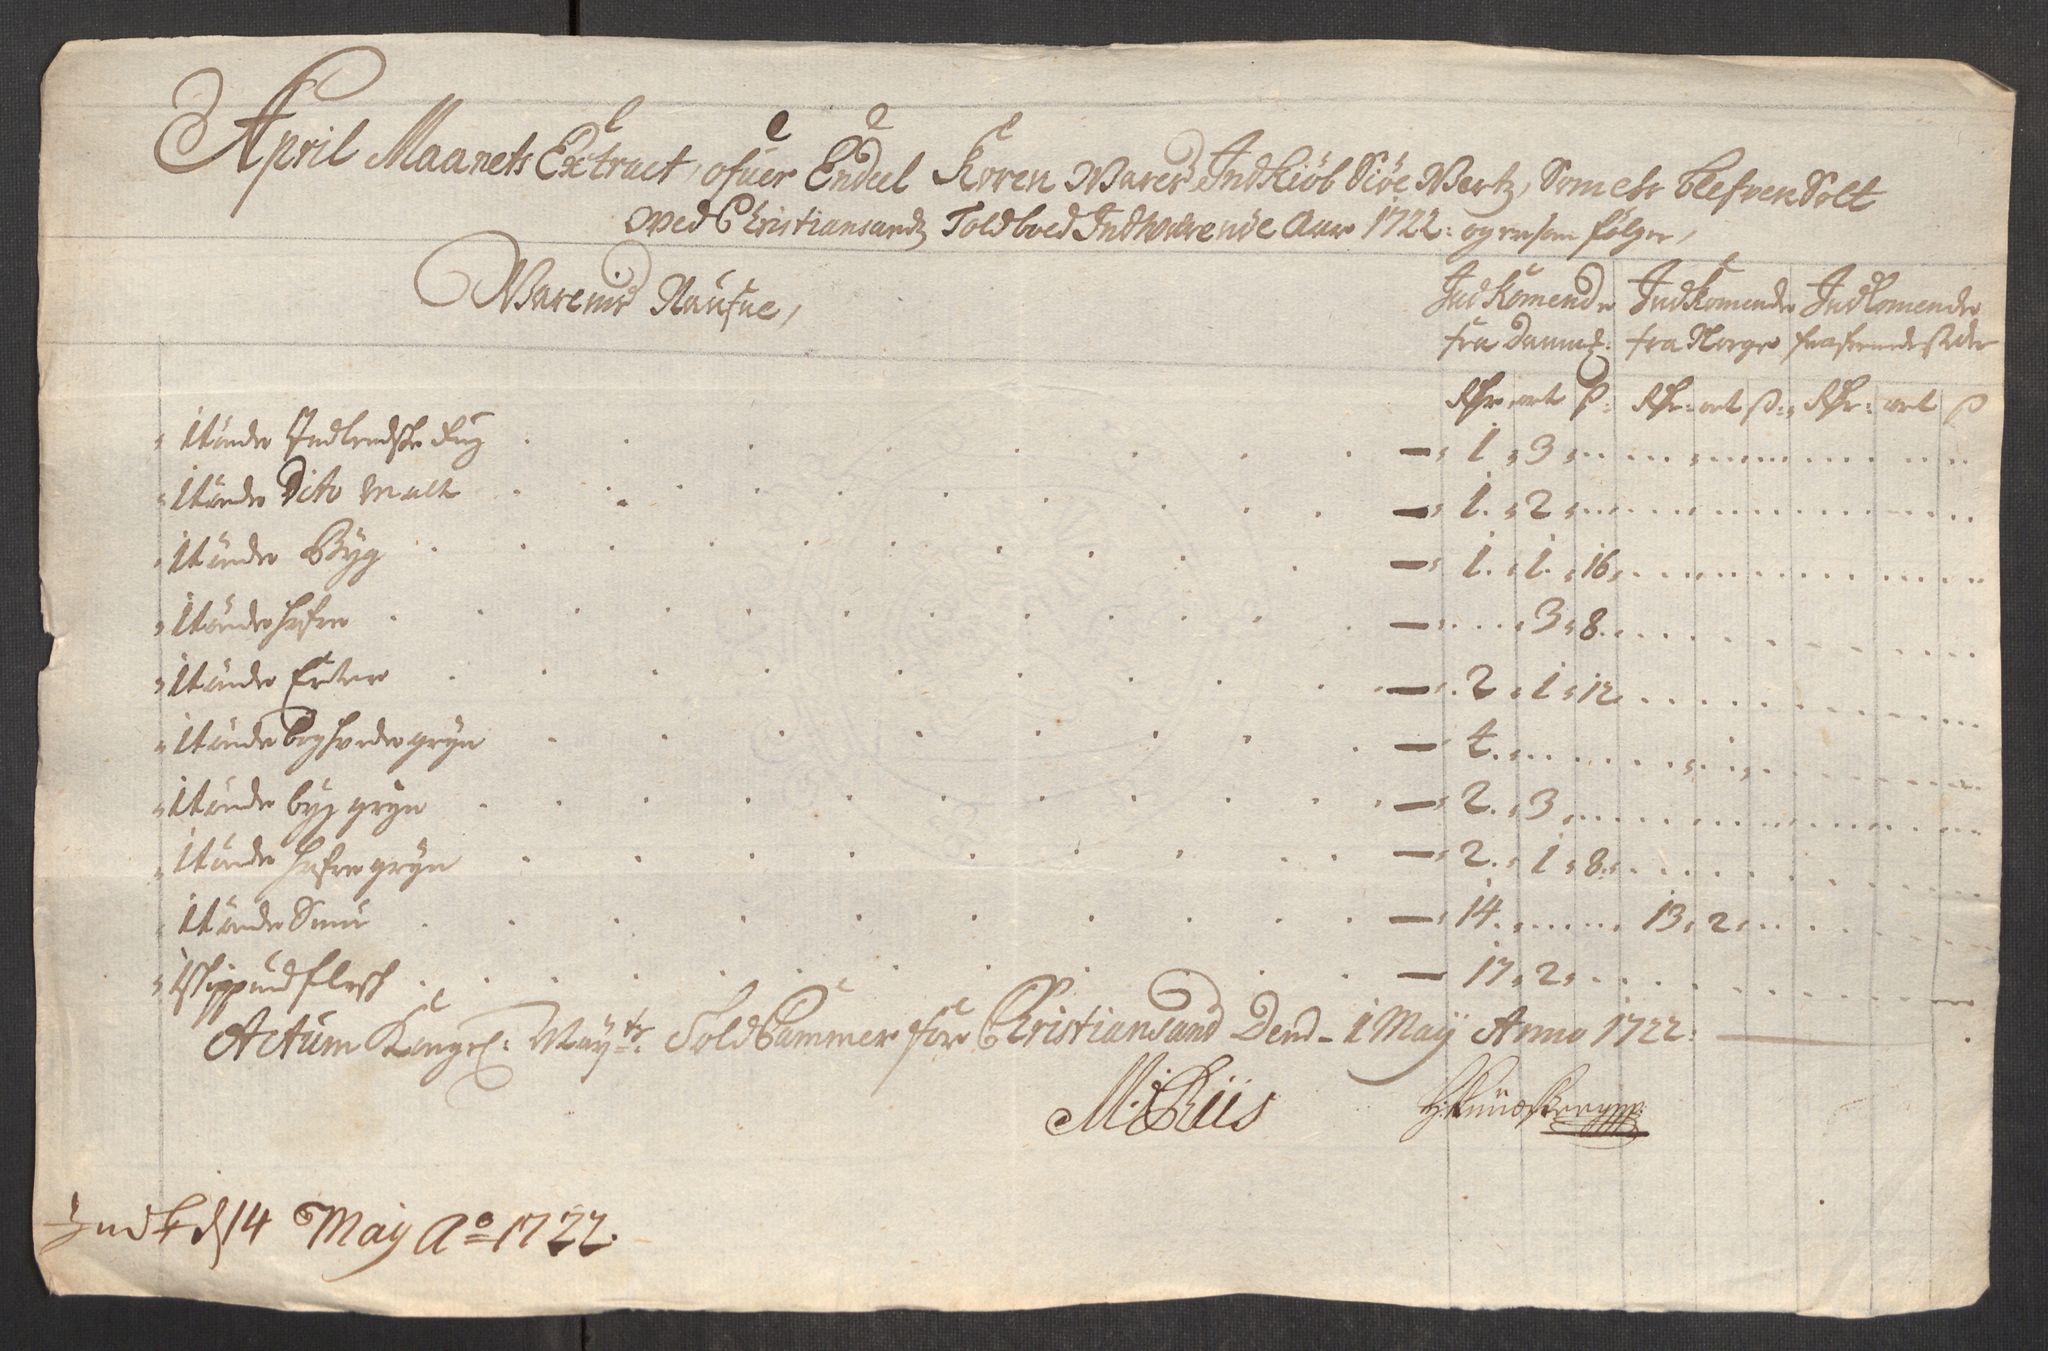 April Maanets Extract, ofuer Endeel Koren Warer Indkiöb Siöe Wertz, Som er blefven Solt
wed Christiansandz Toldboed Indwærende Aar 1722: og er som følger,
Warernis Naufne,
Indkomende Indkomende Indkomende
fra Danmk: fra Norge fra fremmede stæder
Rdr: ort ß: Rdr: ort ß: Rdr: ort ß
1 tønde Indlendske Rug — 1 3
1 tønde Dito Malt — 1 2
1 tønde Byg — 1 1 16
1 tønde hafre — 3 8
1 tønde Erter — 2 1 12
1 tønde boghvede gryn — 4
1 tønde byg gryn — 2 3
1 tønde hafre gryn — 2 1 8
1 tønde Smør — 14 13 2
1 skippund flesk — 17 2
Actum Kongel: May:tz Told Cammer for Christiansand Dend 1 Maij Anno 1722:
M: Riis
Indk d 14 Maij Ao 1722.